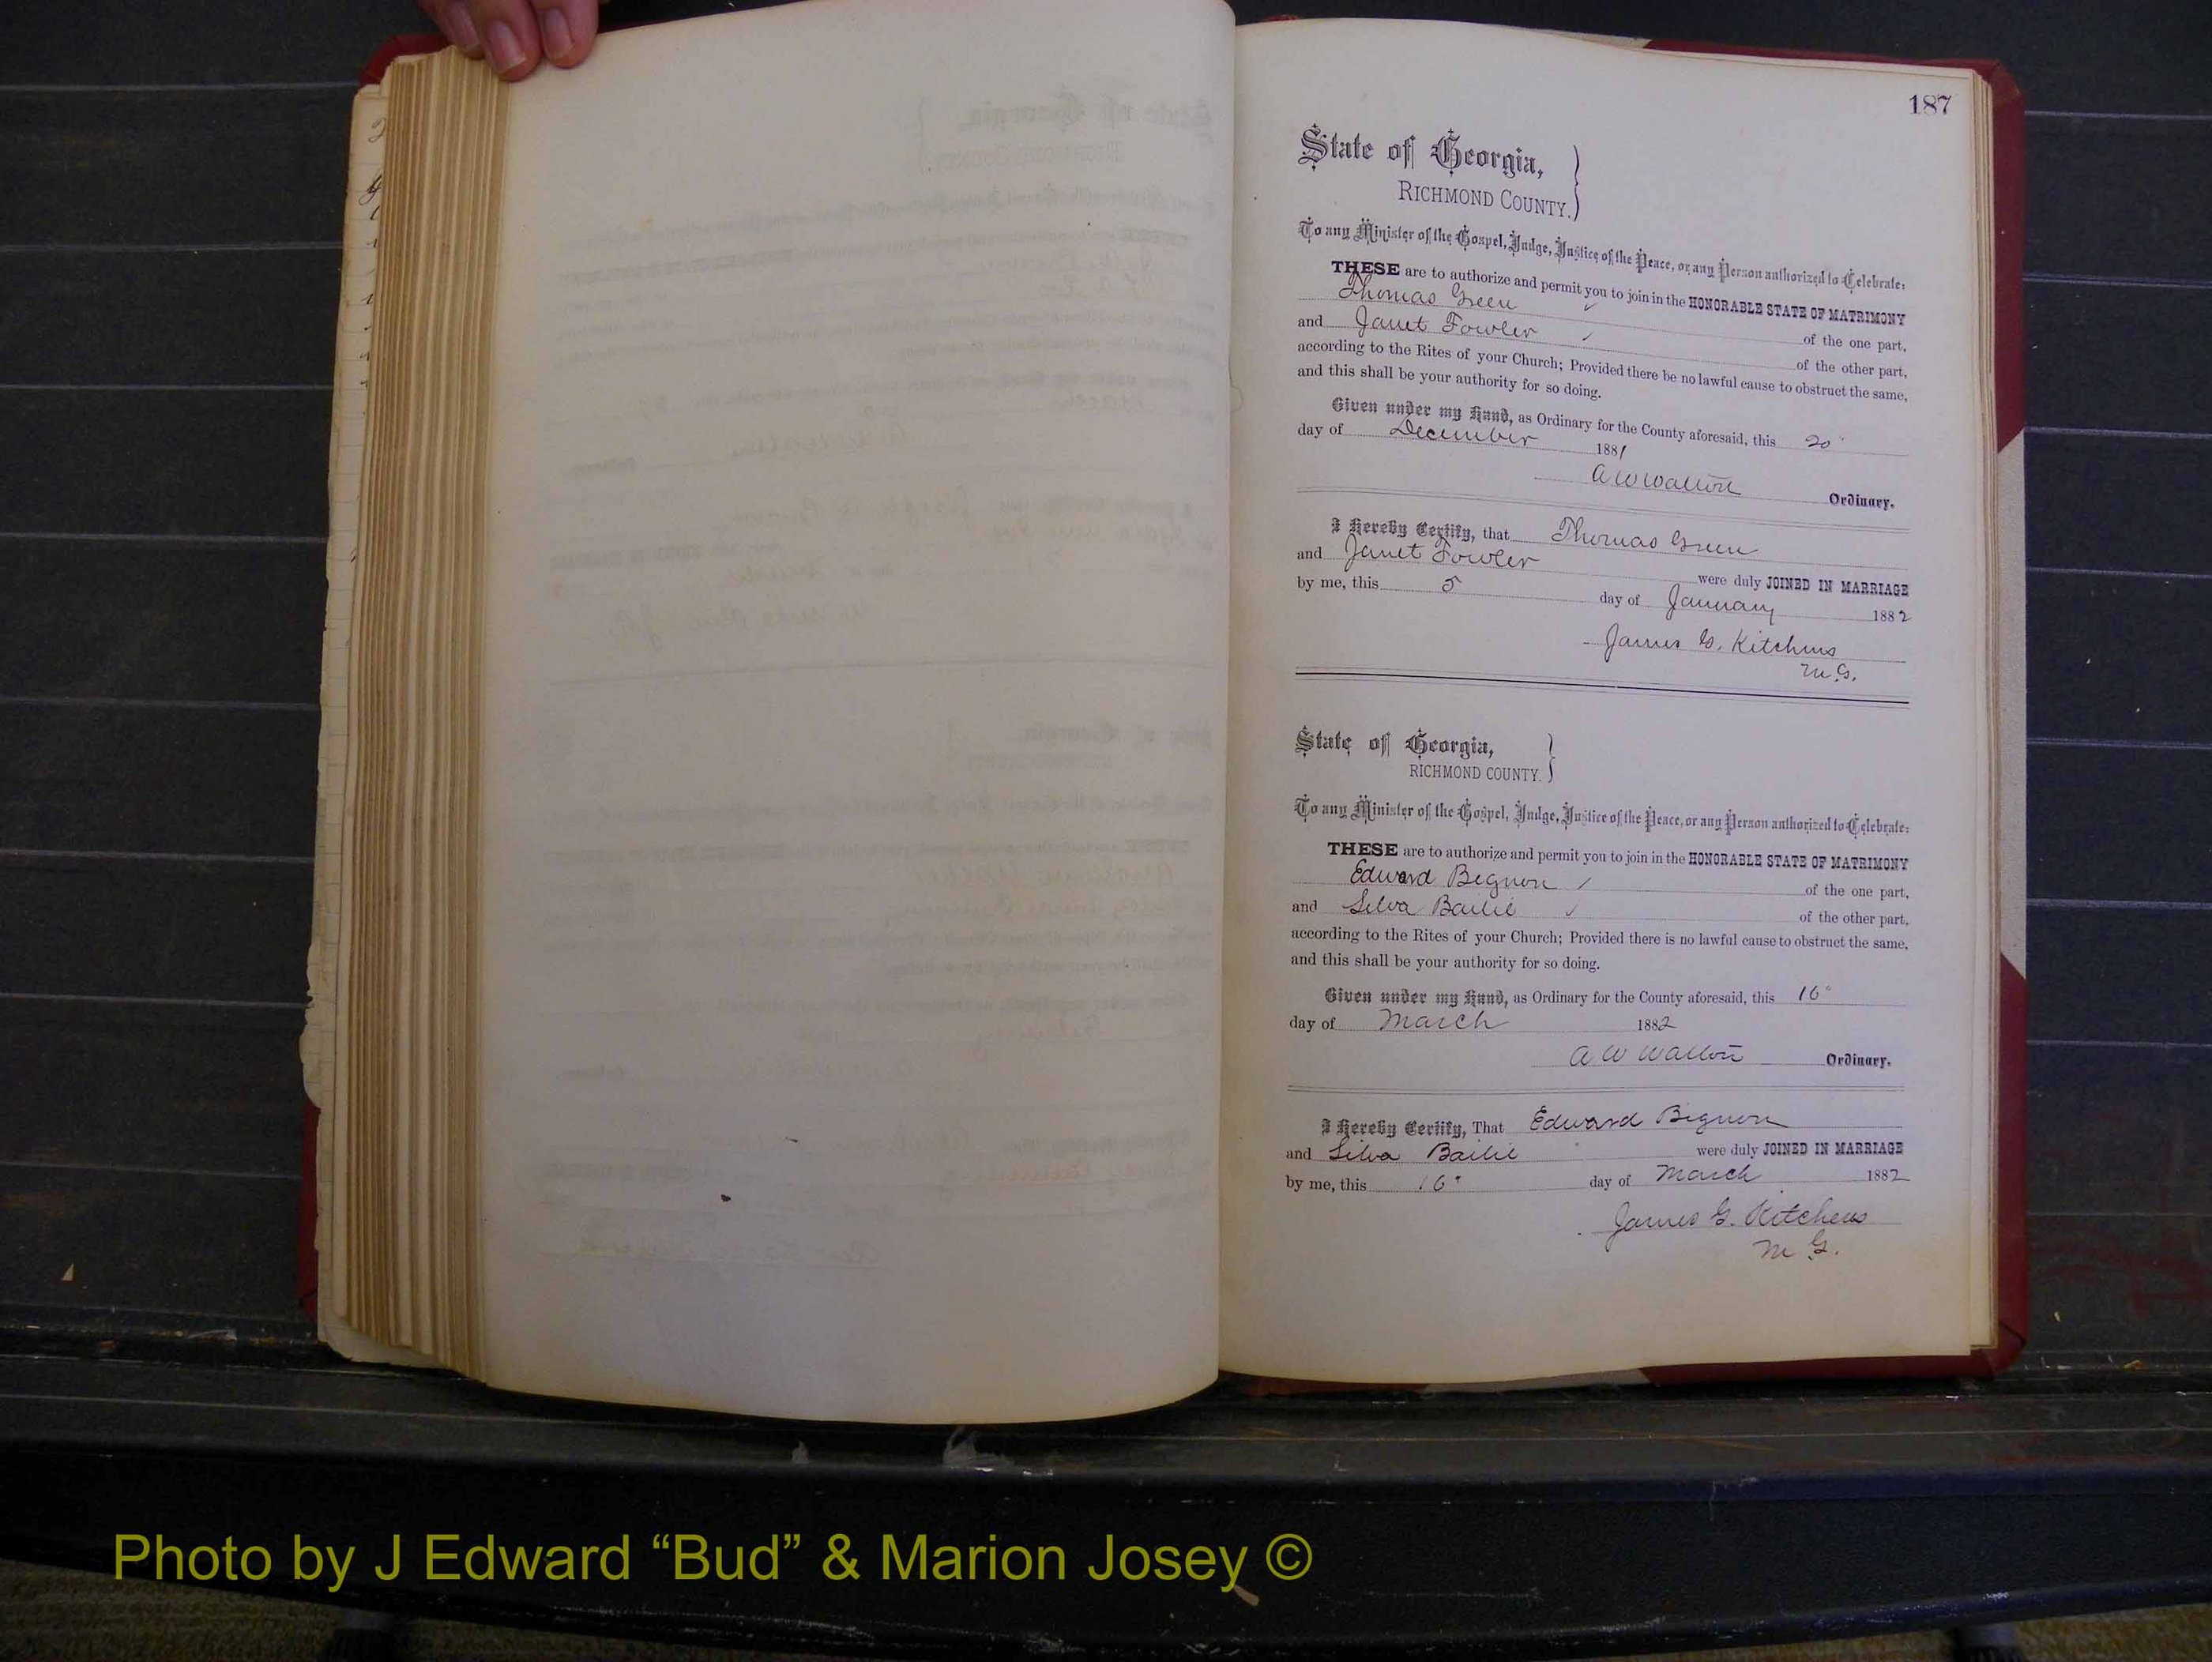 187
State of Georgia,
RICHMOND COUNTY.
To any Minister of the Gospel, Judge, Justice of the Peace, or any Person authorized to Celebrate:
THESE are to authorize and permit you to join in the HONORABLE STATE OF MATRIMONY
Thomas Green of the one part,
and Janet Fowler of the other part,
according to the Rites of your Church; Provided there be no lawful cause to obstruct the same,
and this shall be your authority for so doing.
Given under my Hand, as Ordinary for the County aforesaid, this 20"
day of December 1881
A W Walton Ordinary.
I Hereby Certify, that Thomas Green
and Janet Fowler were duly JOINED IN MARRIAGE
by me, this 5 day of January 1882
James G. Kitchens
M.G.
State of Georgia,
RICHMOND COUNTY.
To any Minister of the Gospel, Judge, Justice of the Peace, or any Person authorized to Celebrate:
THESE are to authorize and permit you to join in the HONORABLE STATE OF MATRIMONY
Edward Bignon of the one part,
and Silva Bailie of the other part,
according to the Rites of your Church; Provided there is no lawful cause to obstruct the same,
and this shall be your authority for so doing.
Given under my Hand, as Ordinary for the County aforesaid, this 16"
day of March 1882
A W Walton Ordinary.
I Hereby Certify, That Edward Bignon
and Silva Bailie were duly JOINED IN MARRIAGE
by me, this 16" day of March 1882
James G. Kitchens
M G.
Photo by J Edward “Bud” & Marion Josey ©